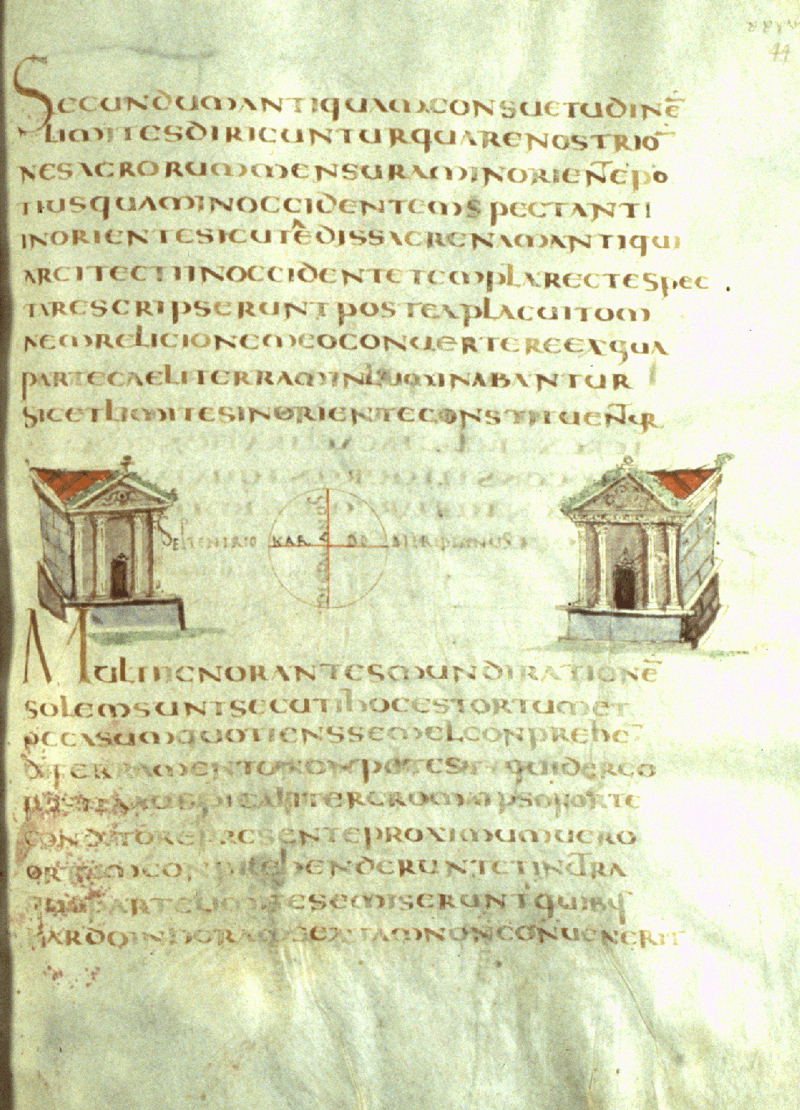 SECUNDUMANTIQUAMCONSUETUDINE̅
LIMITESDIRICUNTURQUARENOSTRIO̅
NESACRORUMMENSURAMINORIEN̅TEPO
TIUSQUAMINOCCIDENTEMSPECTANTI
INORIENTESICUTEDISSACRENAMANTIQUI
ARCITECTIINOCCIDENTETEMPLARECTESPEC
TARESCRIPSERUNTPOSTEAPLACUITOM
NEMRELICIONEMEOCONUERTEREEXQUA
PARTECAELITERRAMINLUMINABANTUR
SICETLIMITESINORIENTECONSTITUEN̅TR
SEPTENTRIO KARDO MERIDIANUS
MULTIIGNORANTESMUNDIRATIONE̅
SOLEMSUNTSECUTIHOCESTORTUMET
OCCASUMQUOTIENSSEMELCONPREHE̅
DIFERRAMENTONONPOTESTQUIDERGO
CONDITOREPRESENTEPROXIMUMUERO
ORTUMCONPREHENDERUNTETINUTRA
PARTELIMITESEMISERUNTQUIBUS
KARDOINHORAMSEXTAMNONCONUENERIT